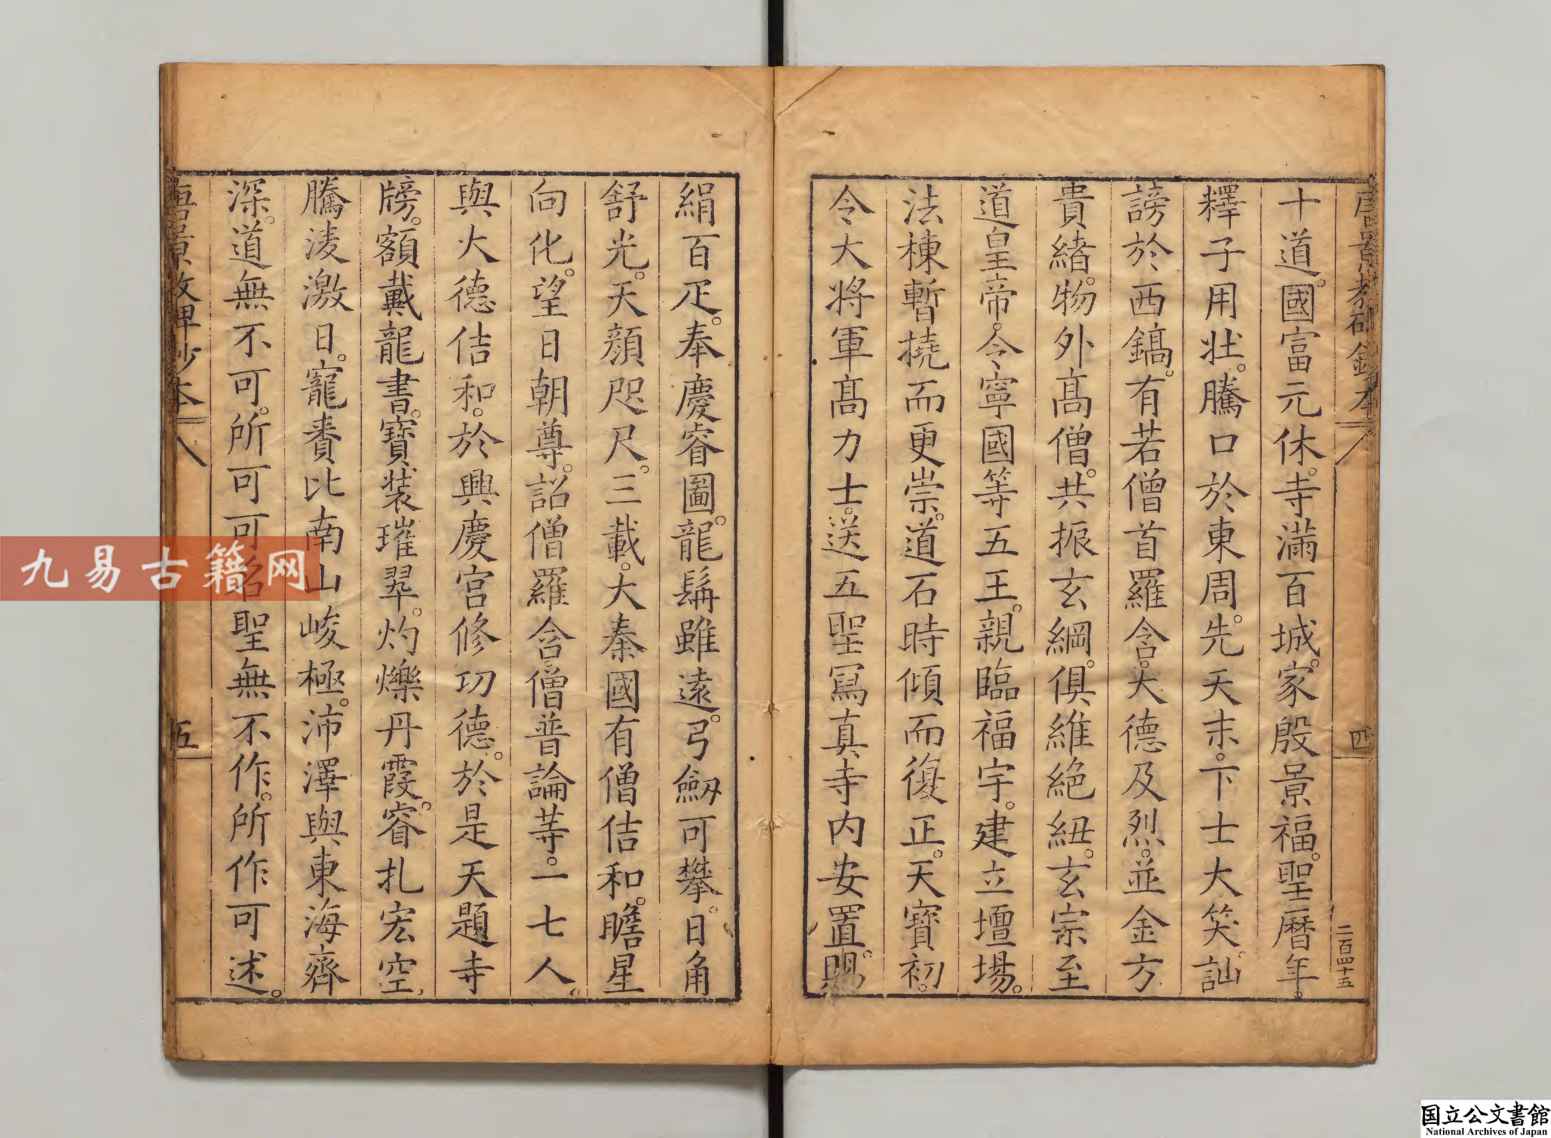 十道。國富元休。寺滿百城。家殷景福。聖曆年。
釋子用壯。騰口於東周。先天末。下士大笑。訕
謗於西鎬。有若僧首羅含。大德及烈。並金方
貴緒。物外高僧。共振玄綱。俱維絕紐。玄宗至
道皇帝。令寧國等五王。親臨福宇。建立壇場。
法棟暫撓而更崇。道石時傾而復正。天寶初。
令大將軍高力士。送五聖寫真寺內安置。賜
絹百疋。奉慶睿圖。龍髯雖遠。弓劒可攀。日角
舒光。天顏咫尺。三載。大秦國有僧佶和。瞻星
向化。望日朝尊。詔僧羅含僧普論等。一七人。
與大德佶和。於興慶宮修功德。於是天題寺
牓。額戴龍書。寶裝璀翠。灼爍丹霞。睿扎宏空。
騰淩激日。寵賚比南山峻極。沛澤與東海齊
深。道無不可。所可可名聖無不作。所作可述。
唐景教碑鈔本
八
五
四
二百四十五
九易古籍网
国立公文書館
National Archives of Japan